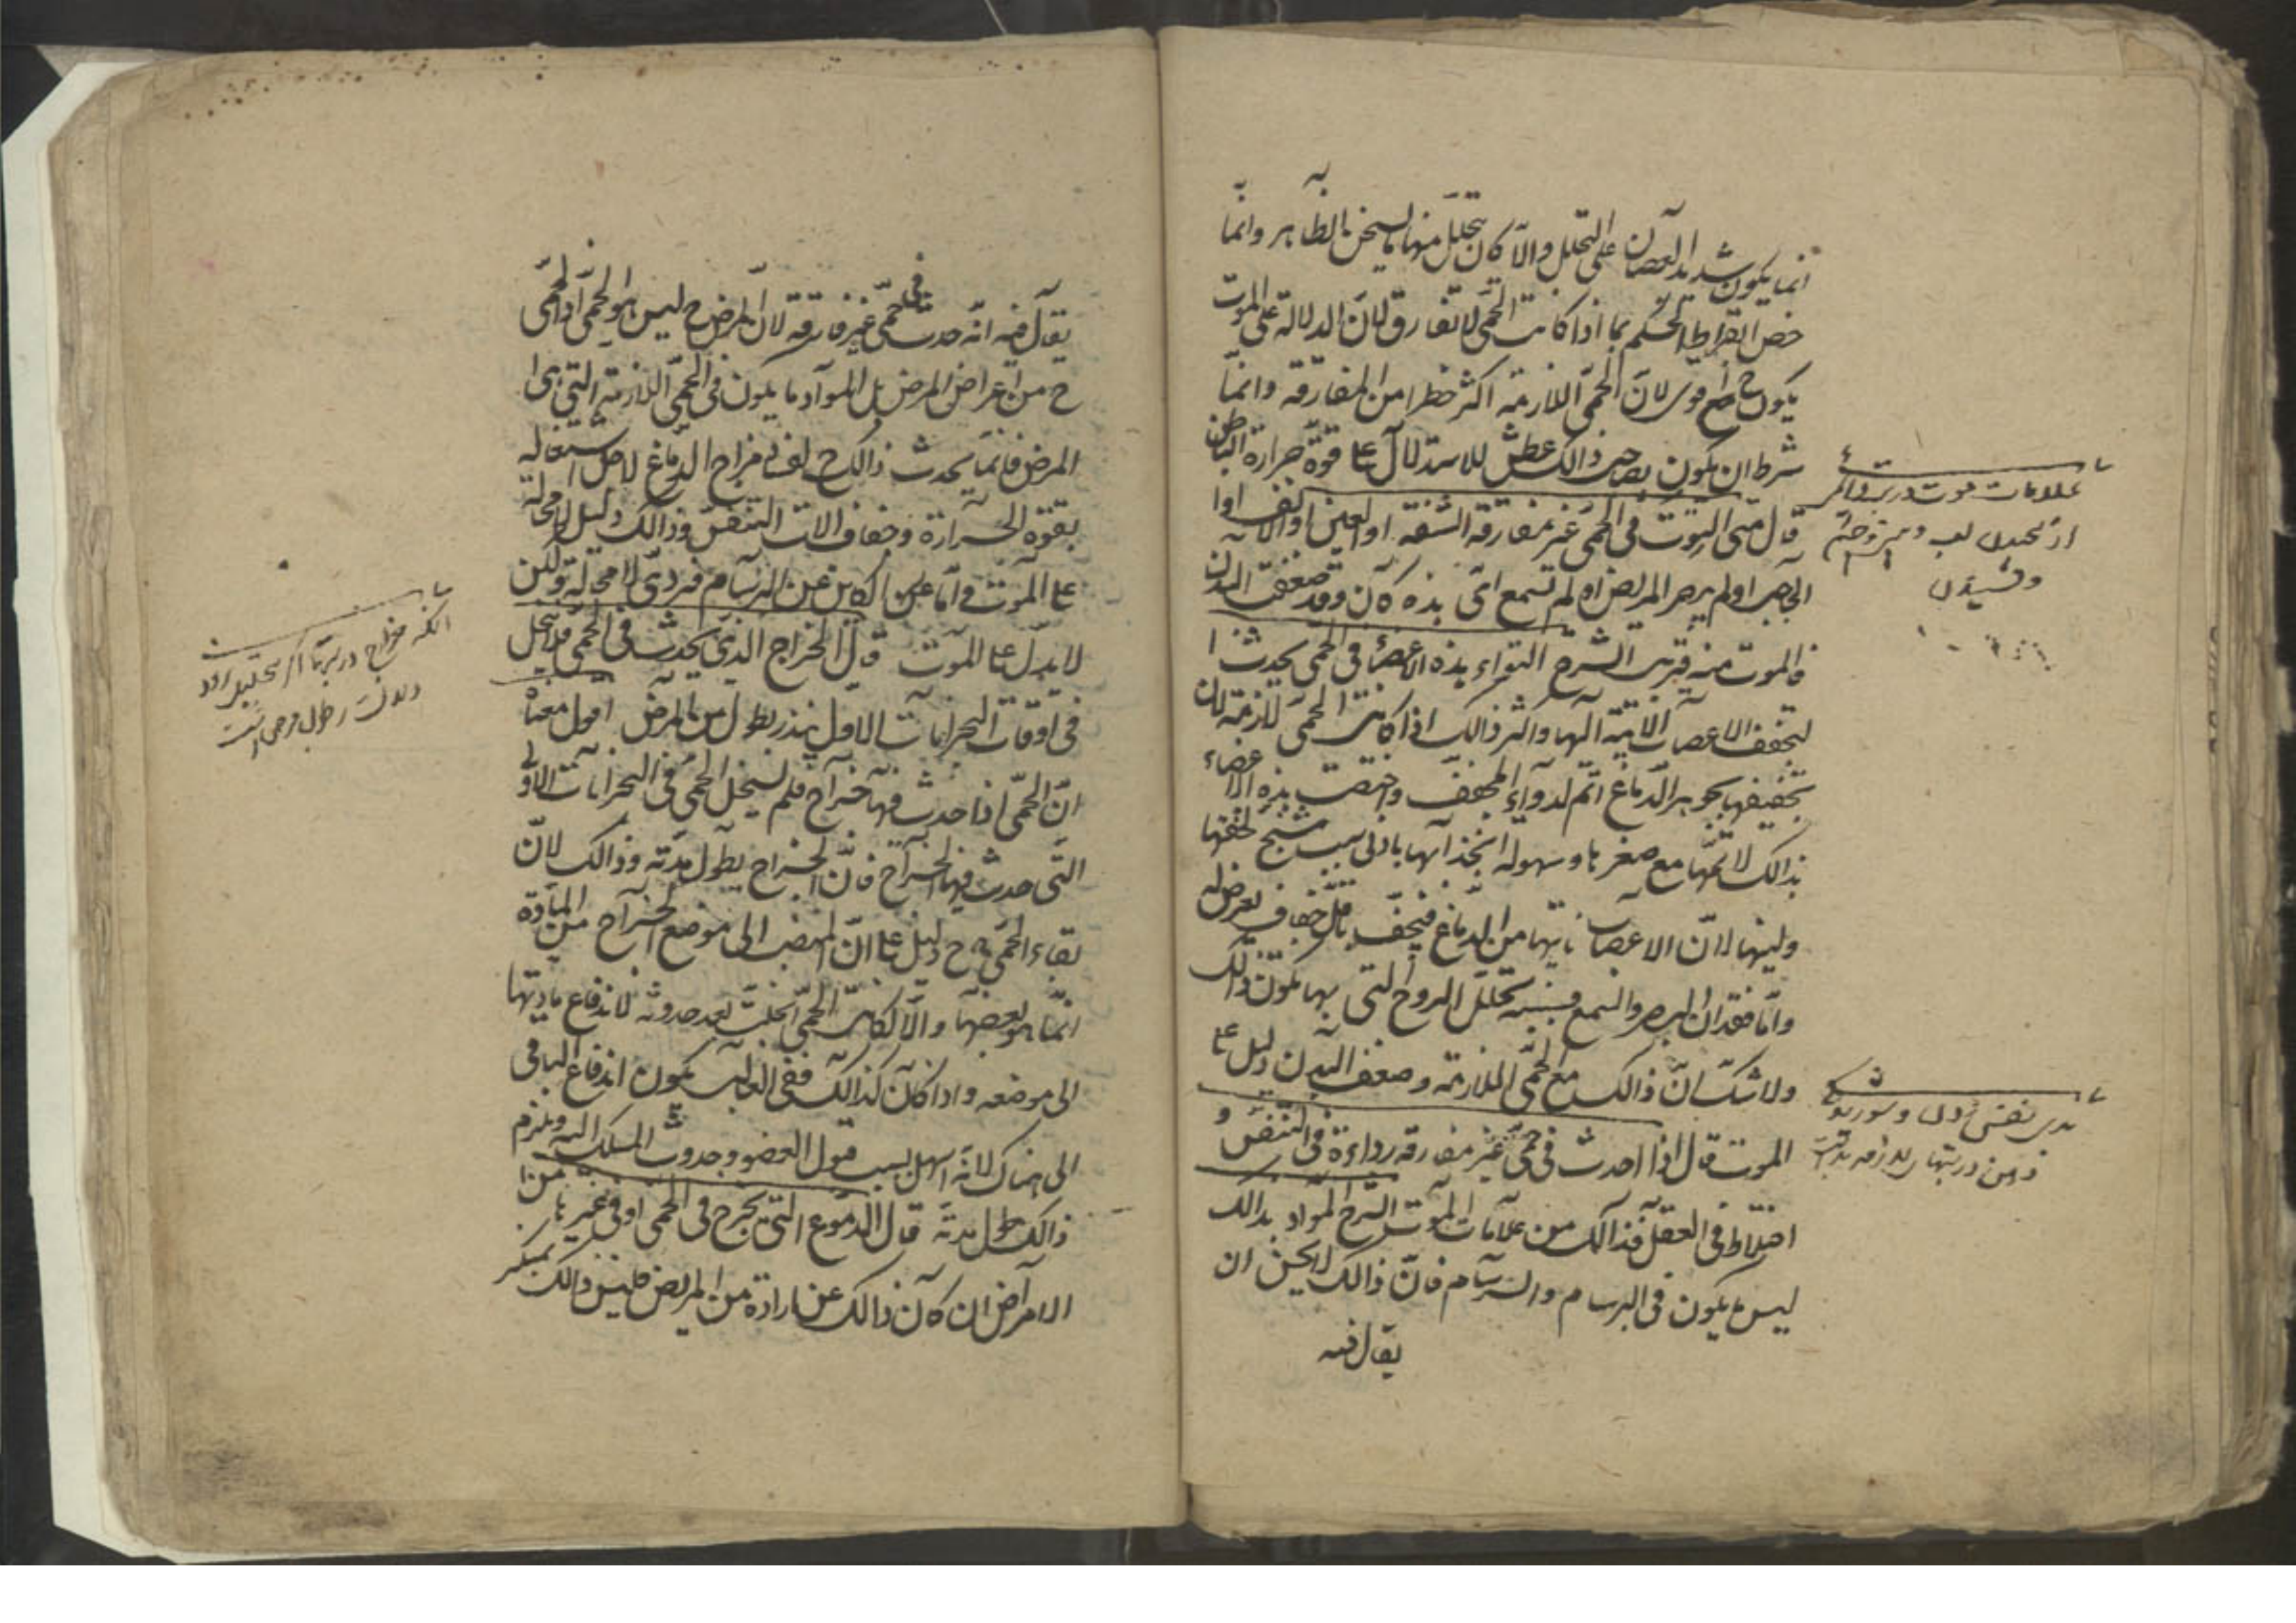 انما يكون شديد العصيان على التحلل والا كان يتحلل منها ما يسخن به الظاهر وانما
خص ابقراط الحكم بما اذا كانت الحمى لا تفارق لان الدلالة على الموت
يكون ح اقوى لان الحمى اللازمة اكثر خطرا من المفارقة وانما
شرط ان يكون بصاحب ذالك عطش للاستدلال على قوة حرارة الباطن
قال متى التوت في الحمى غير مفارقة الشفة او العين او الانف او
الحاجب او لم يبصر المريض او لم تسمع اى هذه كان وقد ضعفت البدن
فالموت منه قريب الشرح التواء هذه الاعضاء في الحمى يحدث
لتجفف الاعصاب الاتية اليها واكثر ذالك اذا كانت الحمى لازمة لان
تجفيفها بجوهر الدماغ اتم لدواء المجفف واختصت هذه الاعضاء
بذالك لانها مع صغرها وسهولة انجذابها بادنى سبب مشنج لخفتها
ولينها لان الاعصاب ياتيها من الدماغ فيجف باقل جفاف يعرض له
واما فقدان البصر والسمع فسببه تحلل الروح التى بها يكون ذالك
ولا شك ان ذالك مع الحمى الملازمة وضعف البدن دليل على
الموت قال اذا حدث في حمى غير مفارقة رداءة في التنفس و
اختلاط في العقل فذالك من علامات الموت الشرح المراد بذالك
ليس ما يكون في البرسام والسرسام فان ذالك لا يحسن ان
يقال فيه
علامات موت در تب دائم
از لب و بينى و چشم
و شنيدن
بدى نفس زدن و شوريدگى
ذهن در تبهاى لازمه
يقال فيه انه حدث في حمى غير مفارقة لان المرض ح ليس هو الحمى اذ الحمى
ح من اعراض المرض بل المراد ما يكون في الحمى اللازمة التي هى
المرض فانما يحدث ذالك ح لفساد مزاج الدماغ لاجل اشتعاله
بقوة الحرارة وجفاف الات التنفس وذالك دليل لا محالة
على الموت واما الكاين عن البرسام فردى لا محالة ولكن
لا يدل على الموت قال الخراج الذى يحدث في الحمى فلا ينحل
في اوقات البحرانات الاول ينذر بطول من المرض اقول معناه
ان الحمى اذا حدث فيها خراج فلم ينحل الحمى في البحرانات الاولى
التى حدث فيها الخراج فان الخراج يطول مدته وذالك لان
بقاء الحمى ح دليل على ان المنصب الى موضع الخراج من المادة
انما هو بعضها والا لكانت الحمى انحلت بعد حدوثه لاندفاع مادتها
الى موضعه واذا كان كذالك ففى الغالب يكون اندفاع الباقى
الى هناك لانه اسهل بسبب قبول العضو وحدوث المسلك اليه ويلزم
ذالك طول مدته قال الدموع التى يخرج في الحمى او في غيرها من
الامراض ان كان ذالك عن ارادة من المريض فليس ذالك بمنكر
آنكه خراج در تبها اگر بتحليل نرود
دلالت بر طول مرض است